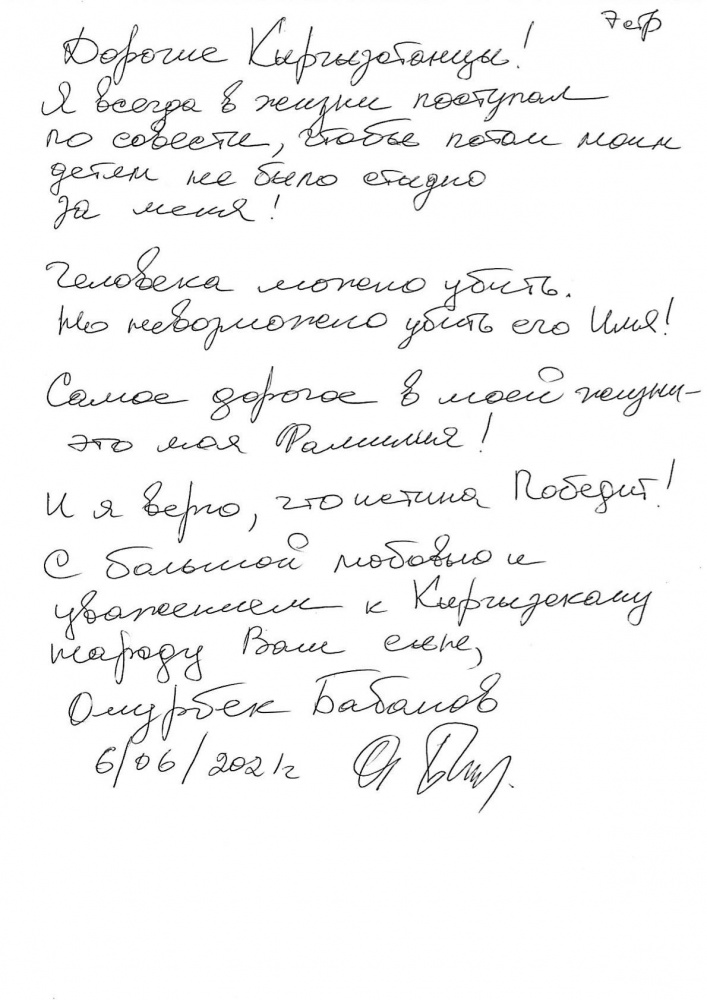 7 стр
Дорогие Кыргызстанцы!
Я всегда в жизни поступал
по совести, чтобы потом моим
детям не было стыдно
за меня!
Человека можно убить.
Но невозможно убить его Имя!
Самое дорогое в моей жизни-
это моя Фамилия!
И я верю, что истина Победит!
С большой любовью и
уважением к Кыргызскому
народу Ваш сын,
Омурбек Бабанов
6/06/2021г